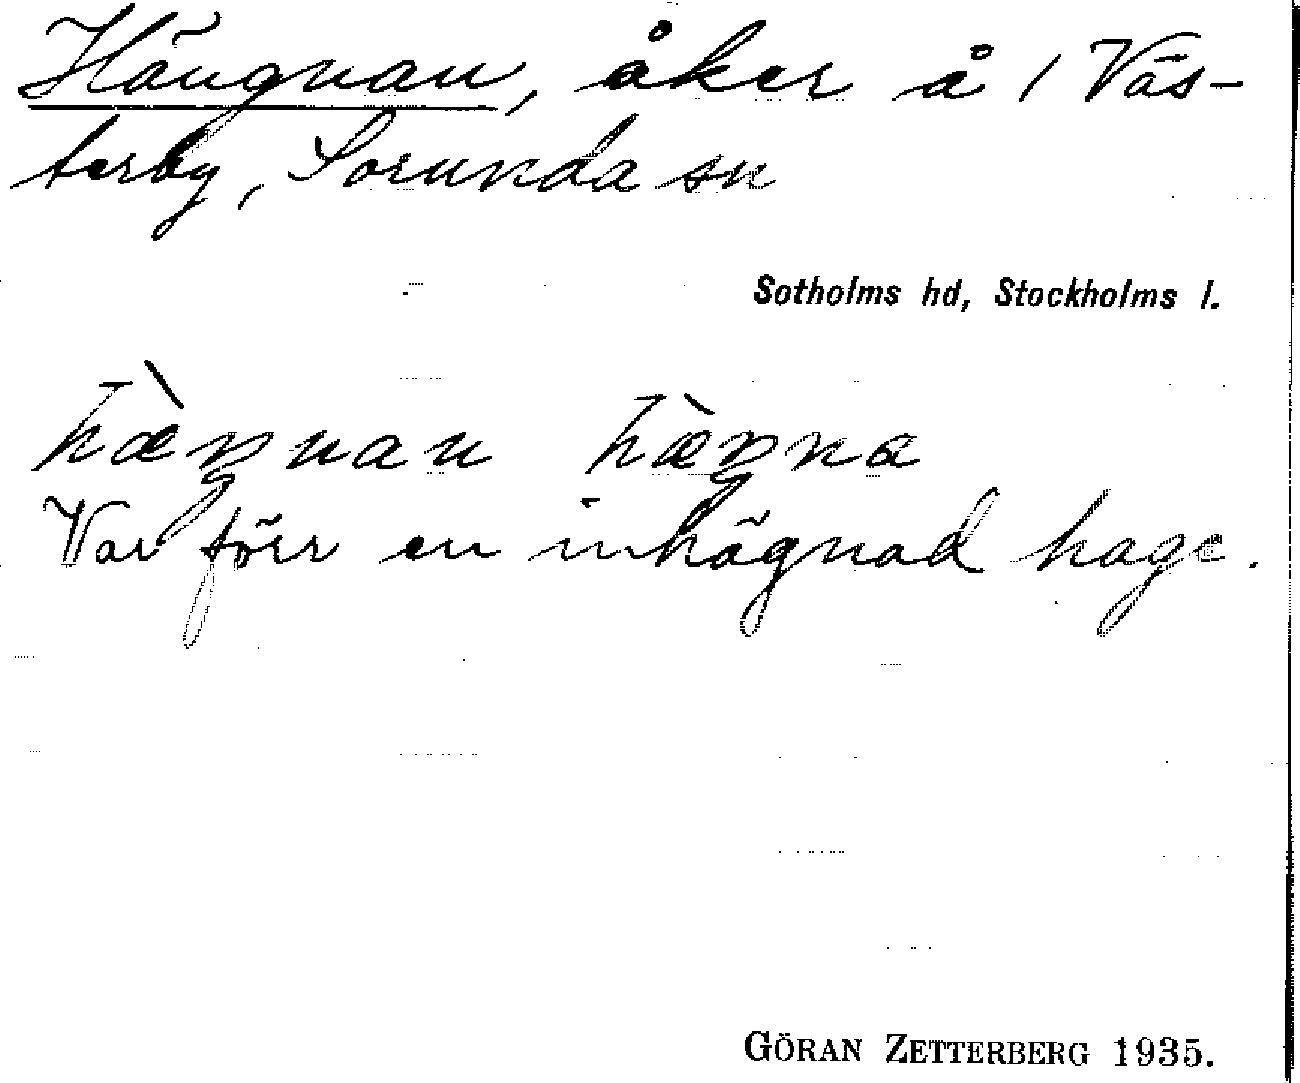 Hängnan, åker å 1 Väs-
terby, Sorunda sn
Sotholms hd, Stockholms l.
hæ̀ŋnan hæ̀ŋna
Var förr en inhägnad hage.
GÖRAN ZETTERBERG 1935.